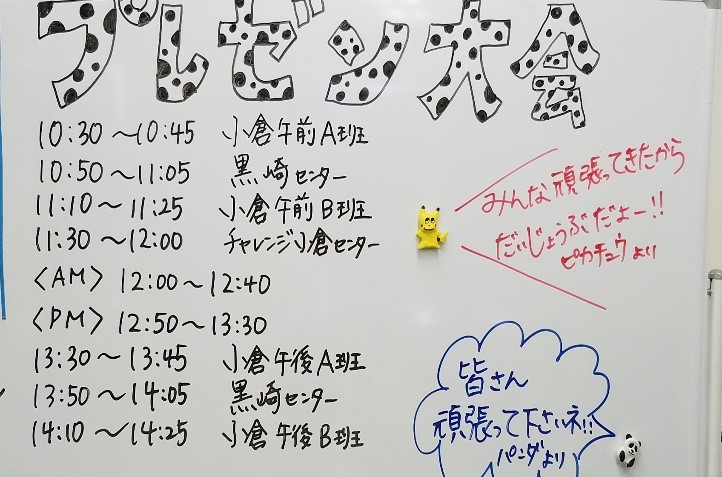 プレゼン大会
10:30～10:45 小倉午前A班
10:50～11:05 黒崎センター
11:10～11:25 小倉午前B班
11:30～12:00 チャレンジ小倉センター
〈AM〉 12:00～12:40
〈PM〉 12:50～13:30
13:30～13:45 小倉午後A班
13:50～14:05 黒崎センター
14:10～14:25 小倉午後B班
みんな頑張ってきたから
だいじょうぶだよー!!
ピカチュウより
皆さん
頑張って下さいネ!!
パンダより